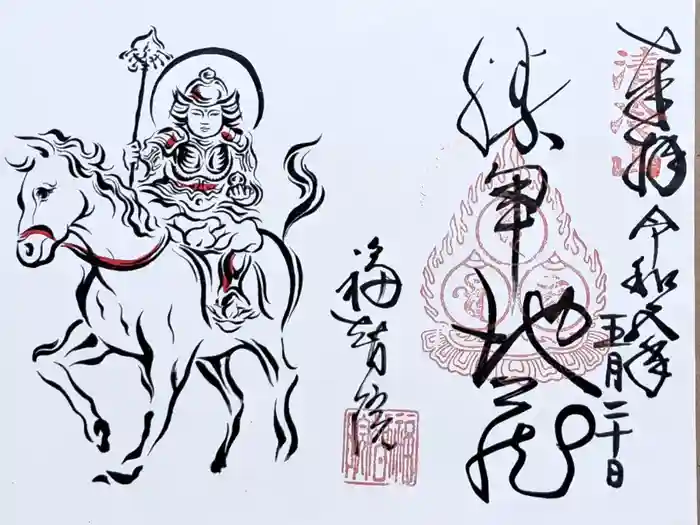 奉拝
令和六年
五月二十日
勝軍地蔵
福智院